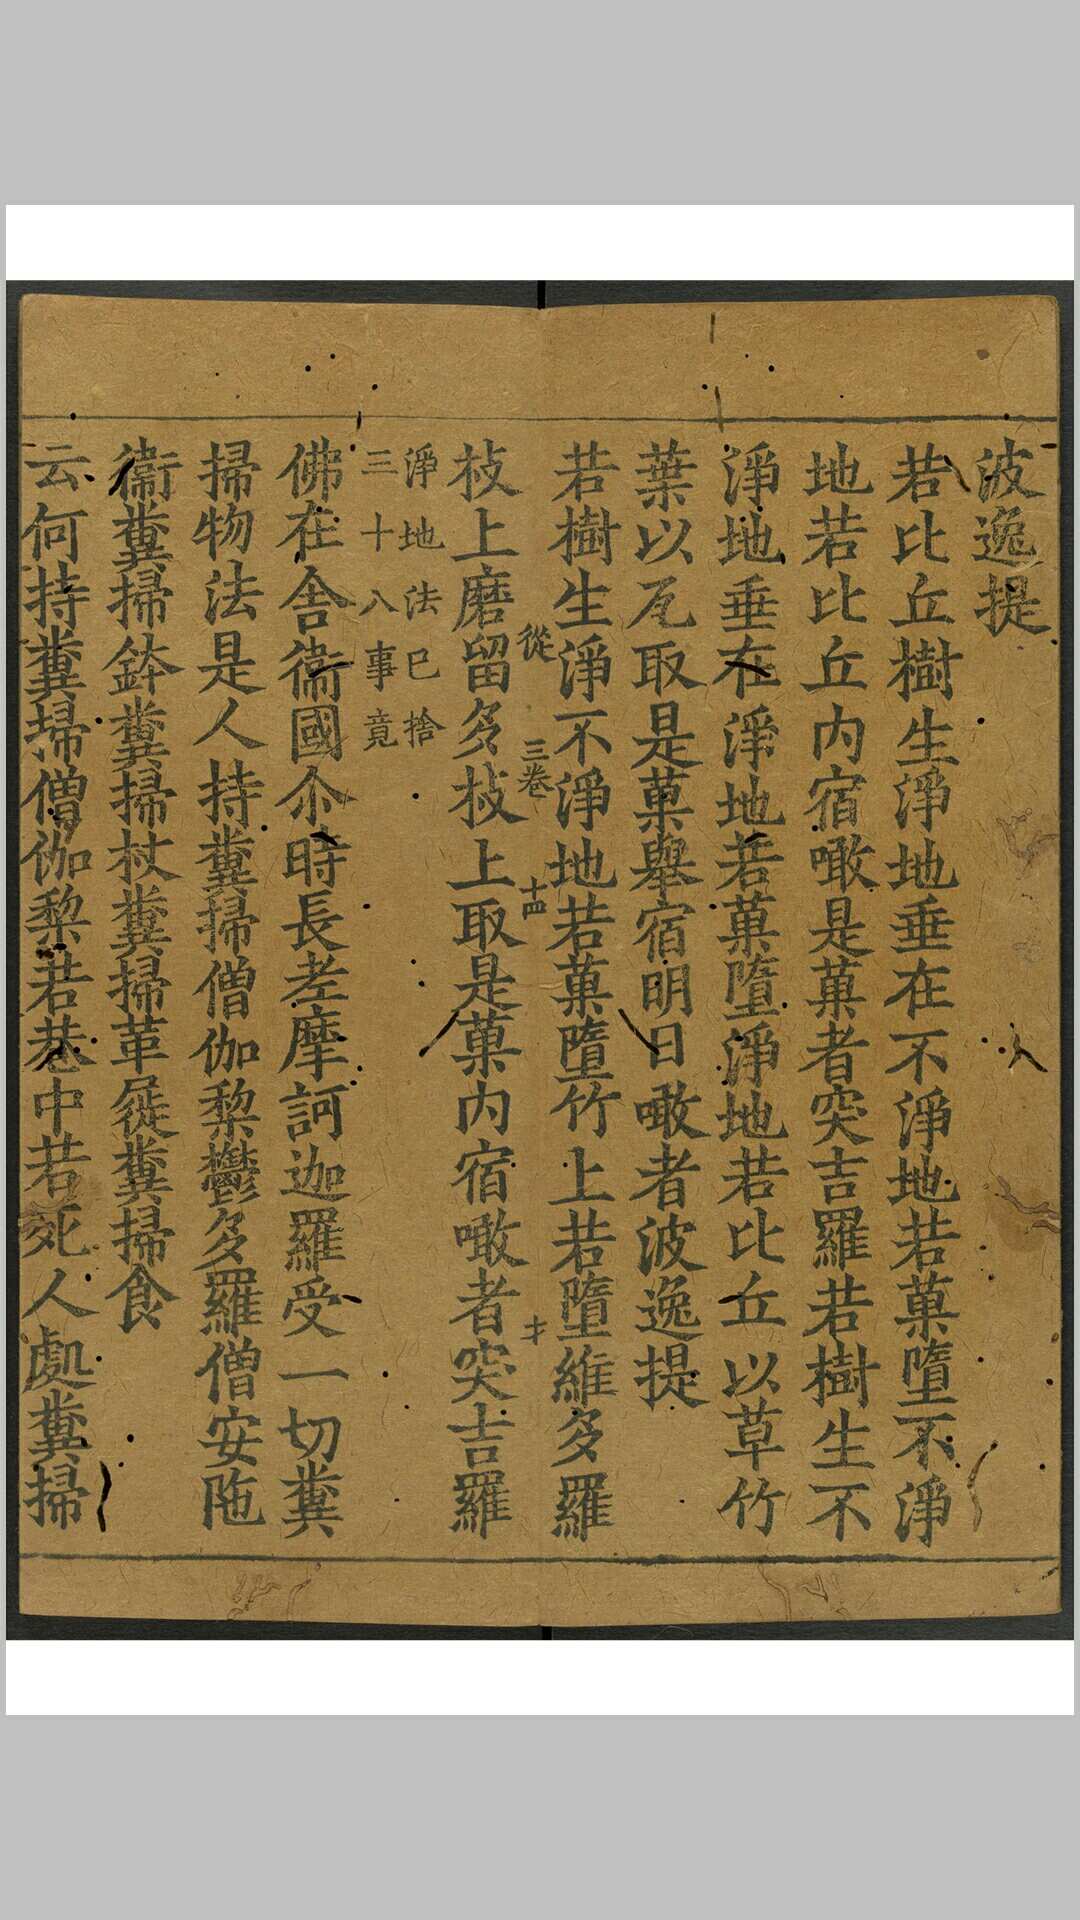 波逸提
若比丘樹生淨地垂在不淨地若菓墮不淨
地若比丘内宿噉是菓者突吉羅若樹生不
淨地垂在淨地若菓墮淨地若比丘以草竹
葉以瓦取是菓舉宿明日噉者波逸提
若樹生淨不淨地若菓墮竹上若墮維多羅
從 三卷 十四 才
枝上磨留多枝上取是菓内宿噉者突吉羅
淨地法已捨
三十八事竟
佛在舎衞國尒時長老摩訶迦羅受一切糞
掃物法是人持糞掃僧伽梨鬱多羅僧安陁
衞糞掃鉢糞掃杖糞掃革屣糞掃食
云何持糞掃僧伽梨若巷中若死人處糞掃